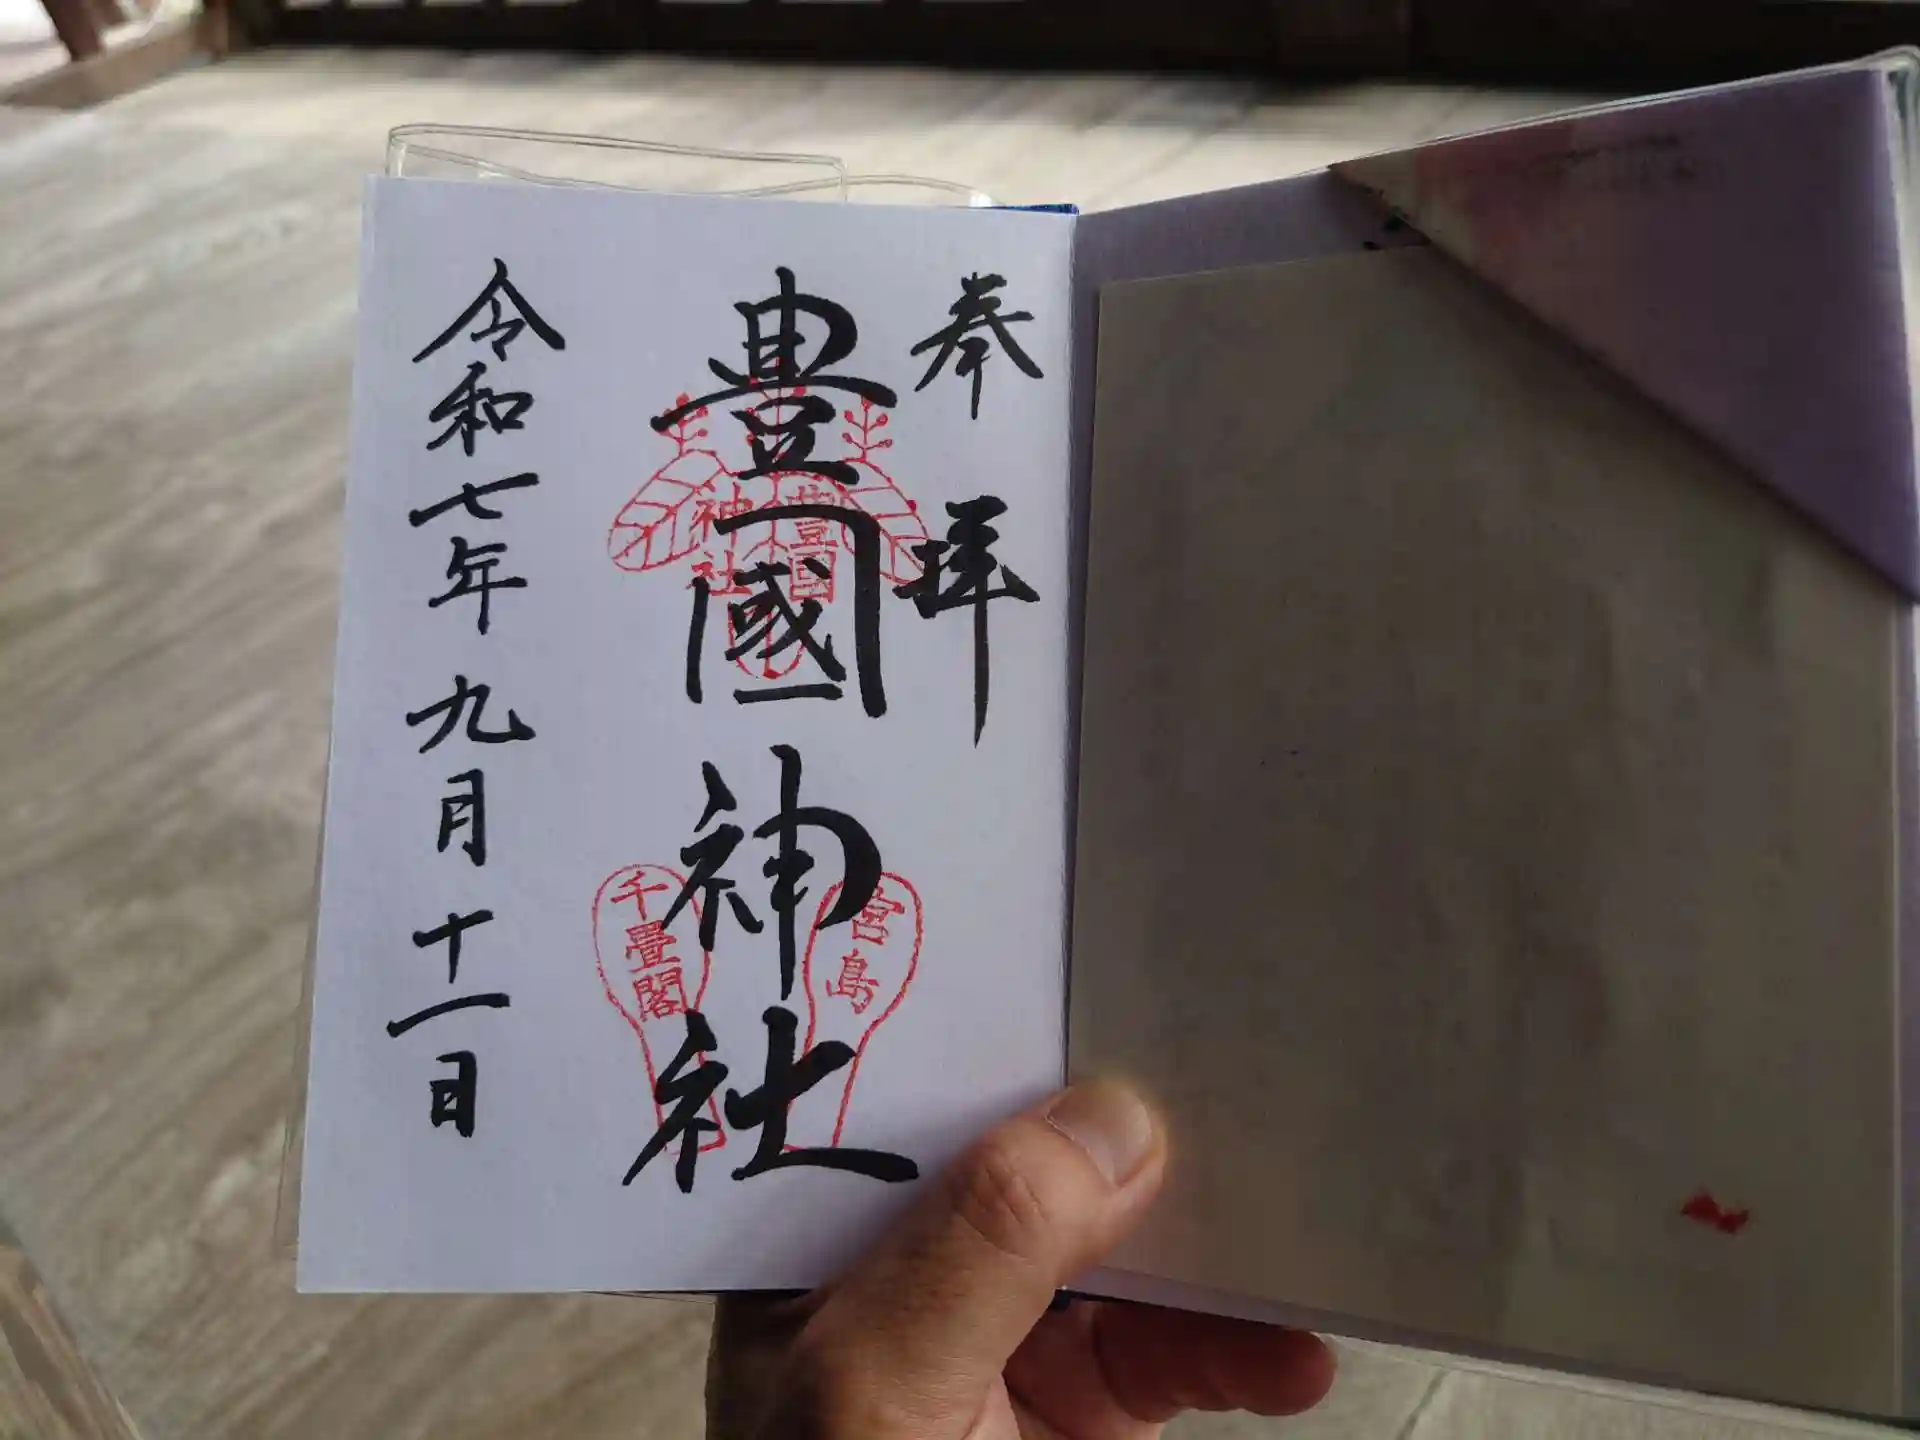 奉拝
豊國神社
豊國
神社
宮島
千畳閣
令和七年九月十一日